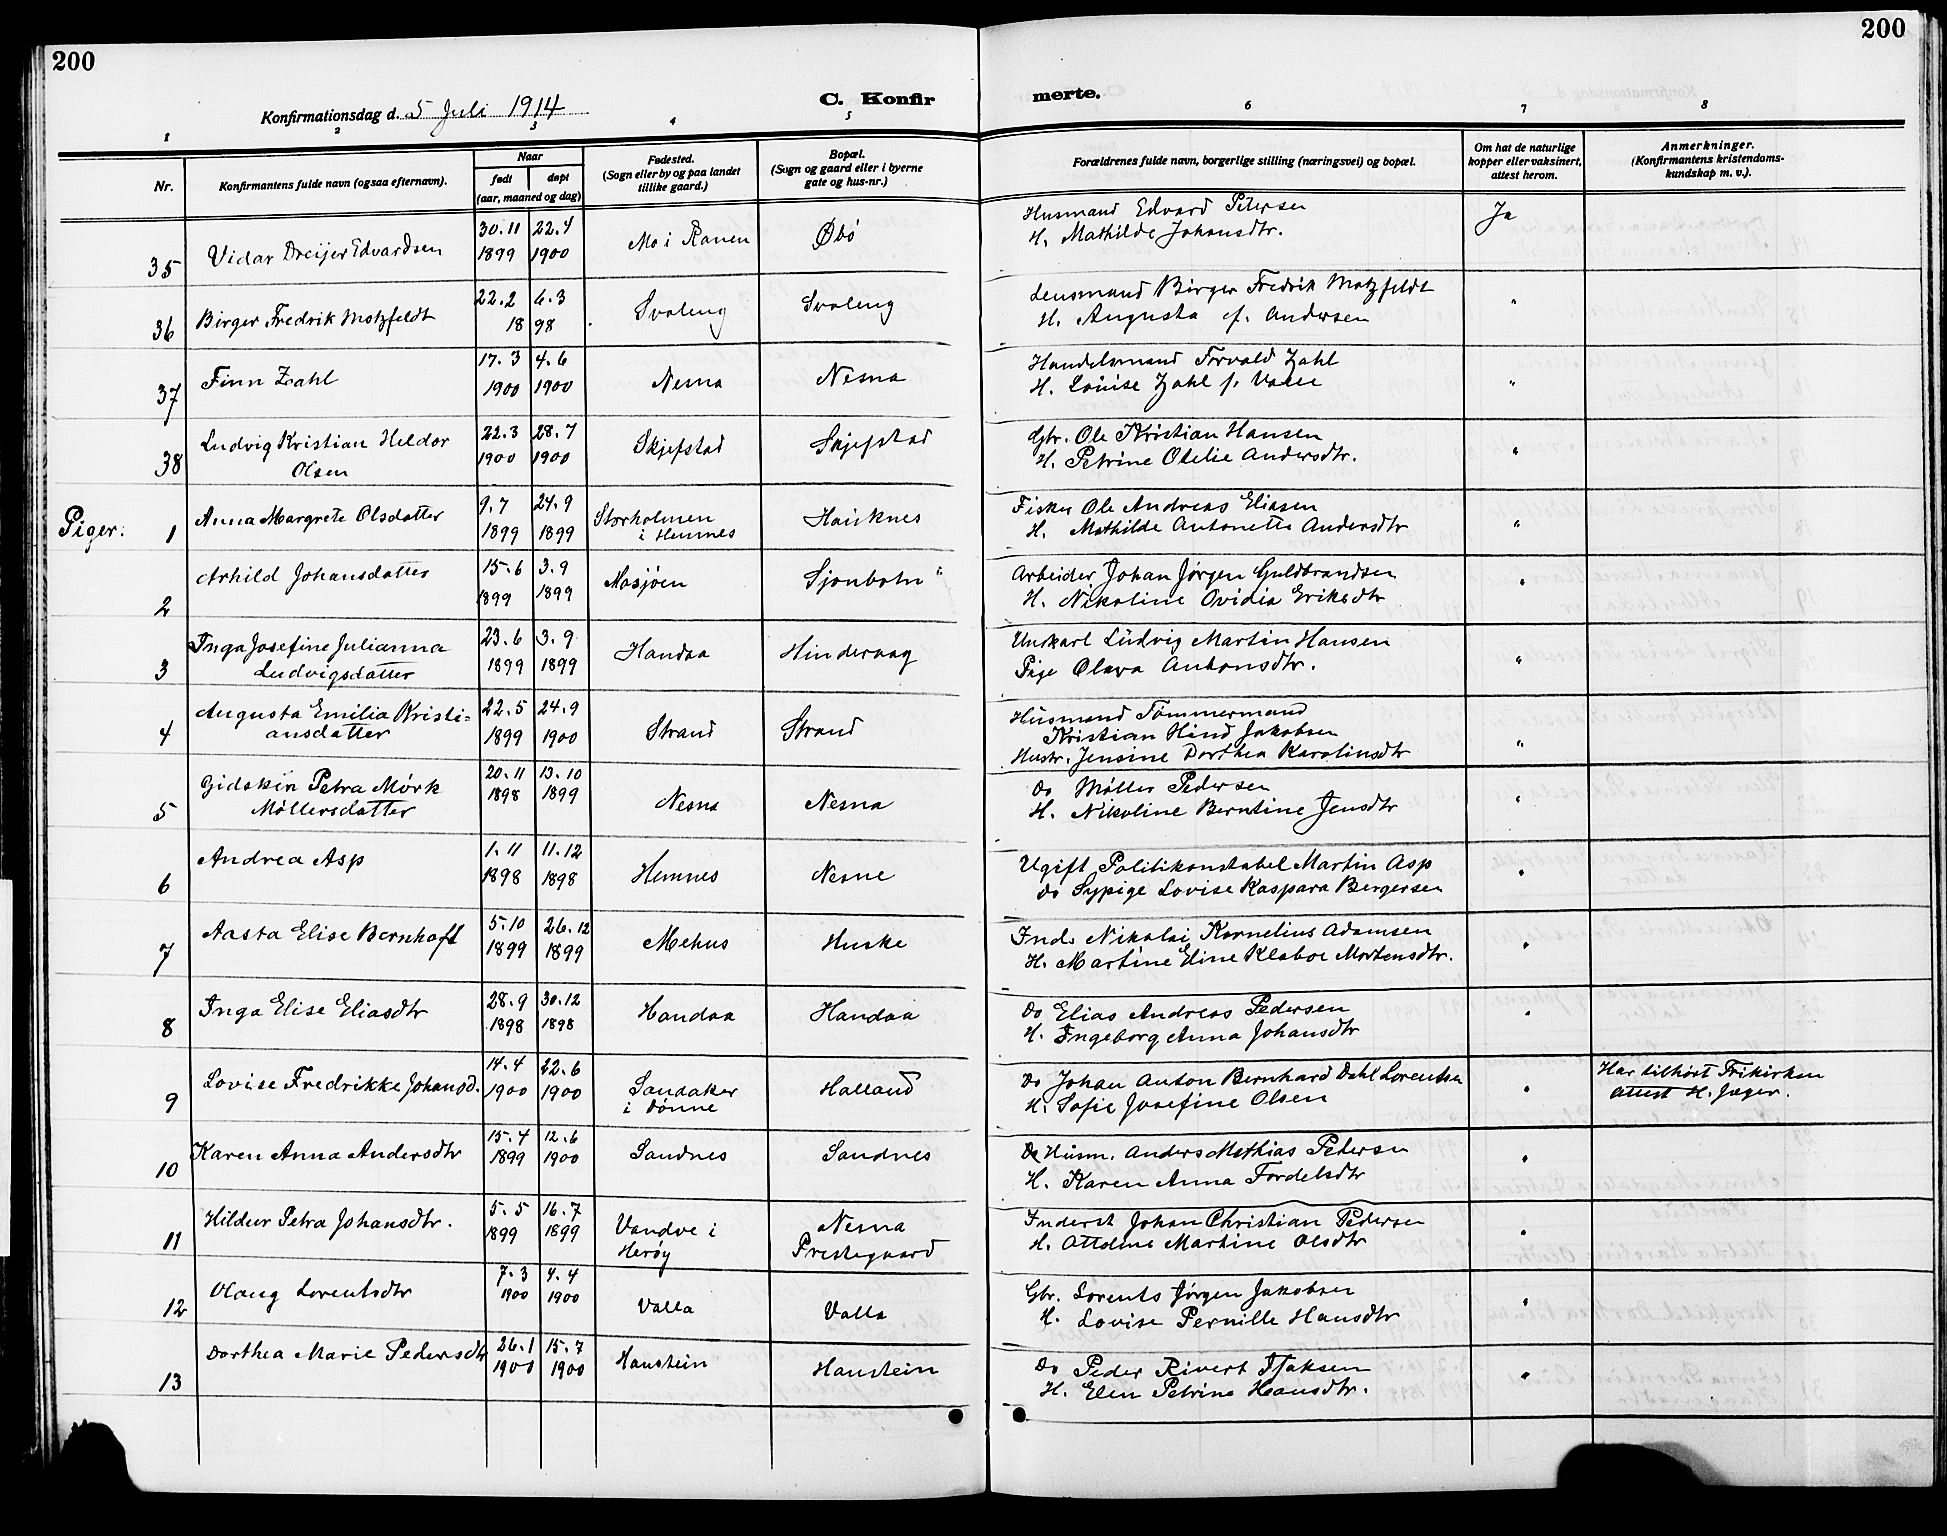 200
200
Konfirmationsdag d. 5 Juli 1914
C. Konfir
merte.
1
2
3
4
5
6
7
8
Nr.
Konfirmantens fulde navn (ogsaa efternavn).
Naar
født
døpt
(aar, maaned og dag)
Fødested.
(Sogn eller by og paa landet
tillike gaard.)
Bopæl.
(Sogn og gaard eller i byerne
gate og hus-nr.)
Forældrenes fulde navn, borgerlige stilling (næringsvei) og bopæl.
Om hat de naturlige
kopper eller vaksinert,
attest herom.
Anmerkninger.
(Konfirmantens kristendoms-
kundskap m. v.).
35
Vidar Dreijer Edvardsen
30.11
1899
22.4
1900
Mo i Ranen
Øbö
Husmand Edvard Petersen
H. Mathilde Johansdtr.
Ja
36
Birger Fredrik Motzfeldt
22.2 6.3
18 98
Svaleng
Svaleng
Lensmand Birger Fredrik Motzfeldt
H. Augusta f. Andersen
"
37
Finn Zahl
17.3
1900
4.6
1900
Nesna
Nesna
Handelsmand Torvald Zahl
H. Louise Zahl f.
"
38
Ludvig Kristian Heldor
Olsen
22.3
1900
28.7
1900
Skjefstad
Skjefstad
Gbr. Ole Kristian Hansen
H. Petrine Otelie Andersdtr.
"
Piger:
1
Anna Margrete Olsdatter
9.7
1899
24.9
1899
Storholmen
i Hemnes
Hauknes
Fisker Ole Andreas Eliasen
H. Mathilde Antonette Andersdtr
"
2
Arhild Johansdatter
15.6
1899
3.9
1899
Mosjøen
Sjonbotn "
Arbeider Johan Jørgen Guldbrandsen
H. Nikoline Ovidia Eriksdtr
"
3
Inga Josefine Julianna
Ludvigsdatter
23.6
1899
3.9
1899
Handaa
Hinderaag
Unkarl Ludvig Martin Hansen
Pige Olava Antonsdtr.
"
4
Augusta Emilia Kristi=
ansdatter
22.5
1899
24.9
1900
Strand
Strand
Husmand Tömmermand
Kristian Hind Jakobsen
Hustr. Jensine Dorthea Karolinsdtr
"
5
Gidskin Petra Mørk
Möllersdatter
20.11
1898
13.10
1899
Nesna
Nesna
Do Møller Pedersen
H. Nikoline Berntine Jensdtr
"
6
Andrea Asp
1.11
1898
11.12
1898
Hemnes
Nesne
Ugift Politikonstabel Martin Asp
do Sypige Lovise Kaspara Bergersen
"
7
Aasta Elise Bernhoft
5.10
1899
26.12
1899
Mehus
Huske
Inds Nikolai Kornelius Adamsen
H. Martine Eline Klaboe Mortensdtr.
"
8
Inga Elise Eliasdtr
28.9
1898
30.12
1898
Handaa
Handaa
Do Elias Andreas Pedersen
H. Ingeborg Anna Johansdtr
"
9
Lovise Fredrikke Johansd.
14.4
1900
22.6
1900
Sandaker
i Dønne
Halland
Do Johan Anton Bernhard Dahl Lorentsen
H. Sofie Josefine Olsen
"
Har tilhört Frikirken
Attest H. Jæger.
10
Karen Anna Andersdtr
15.4
1899
12.6
1900
Sandnes
Sandnes
Do Husm. Anders Mathias Petersen
H. Karen Anna Tordelsdtr
"
11
Hildur Petra Johansdtr.
5.5
1899
16.7
1899
Vandve i
Herøy
Nesna
Prestegaard
Inderst Johan Christian Pedersen
H. Attdine Martine Olsdtr
"
12
Olaug Lorentsdtr
7.3
1900
4.4
1900
Valla
Valla
Gbr. Lorents Jørgen Jakobsen
H. Lovise Pernille Hansdtr
"
13
Dorthea Marie Pedersdtr
26.1
1900
15.7
1900
Haustein
Haustein
Do Peder Rivert Isaksen
H. Elen Petrine Hansdtr.
"